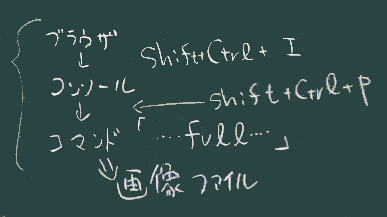 ブラウザ
↓ Shift+Ctrl+I
コンソール
↓ ← shift+Ctrl+P
コマンド 「....full....」
⇓
画像ファイル